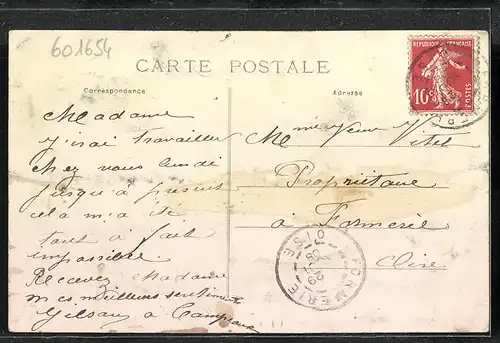 601654
CARTE POSTALE
Correspondance
Adresse
REPUBLIQUE FRANÇAISE
10c
POSTES
Madame
j'irai travailler
chez vous lundi
jusqu'a présent
cela m'a été
tout a fait
impossible
Recevez Madame
mes meilleurs sentiments
à
Mme Veuve Vitel
Propriétaire
à Formerie
Oise
FORMERIE OISE